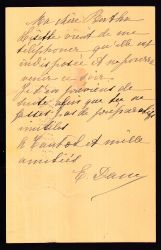 Ma chère Bertha
vient de me
téléphoner qu'elle est
indisposée et ne pourra
venir ce soir.
Je t'en préviens de
suite afin que tu ne
fasses pas de préparatifs
inutiles
à tantôt et mille
amitiés
E.